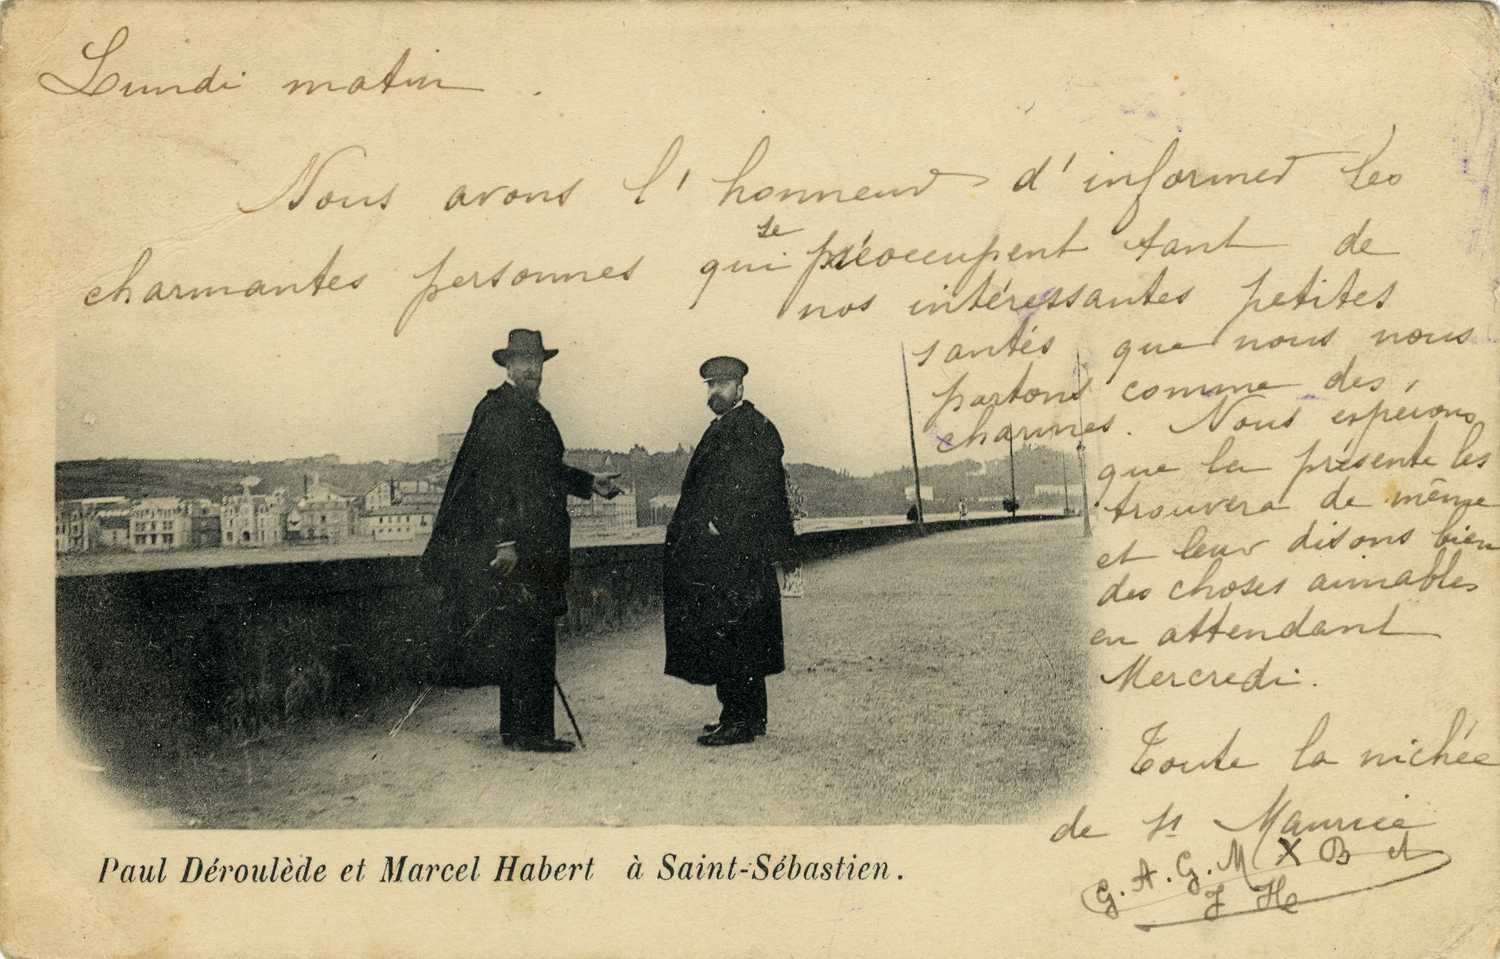 Lundi matin.
Nous avons l'honneur d'informer les
charmantes personnes qui se préoccupent tant de
nos intéressantes petites
santés que nous nous
portons comme des
charmes. Nous espérons
que la présente les
trouvera de même
et leur disons bien
des choses aimables
en attendant
Mercredi.
Toute la nichée
de St Maurice
G. A. G. M X B et
J He
Paul Déroulède et Marcel Habert à Saint-Sébastien.